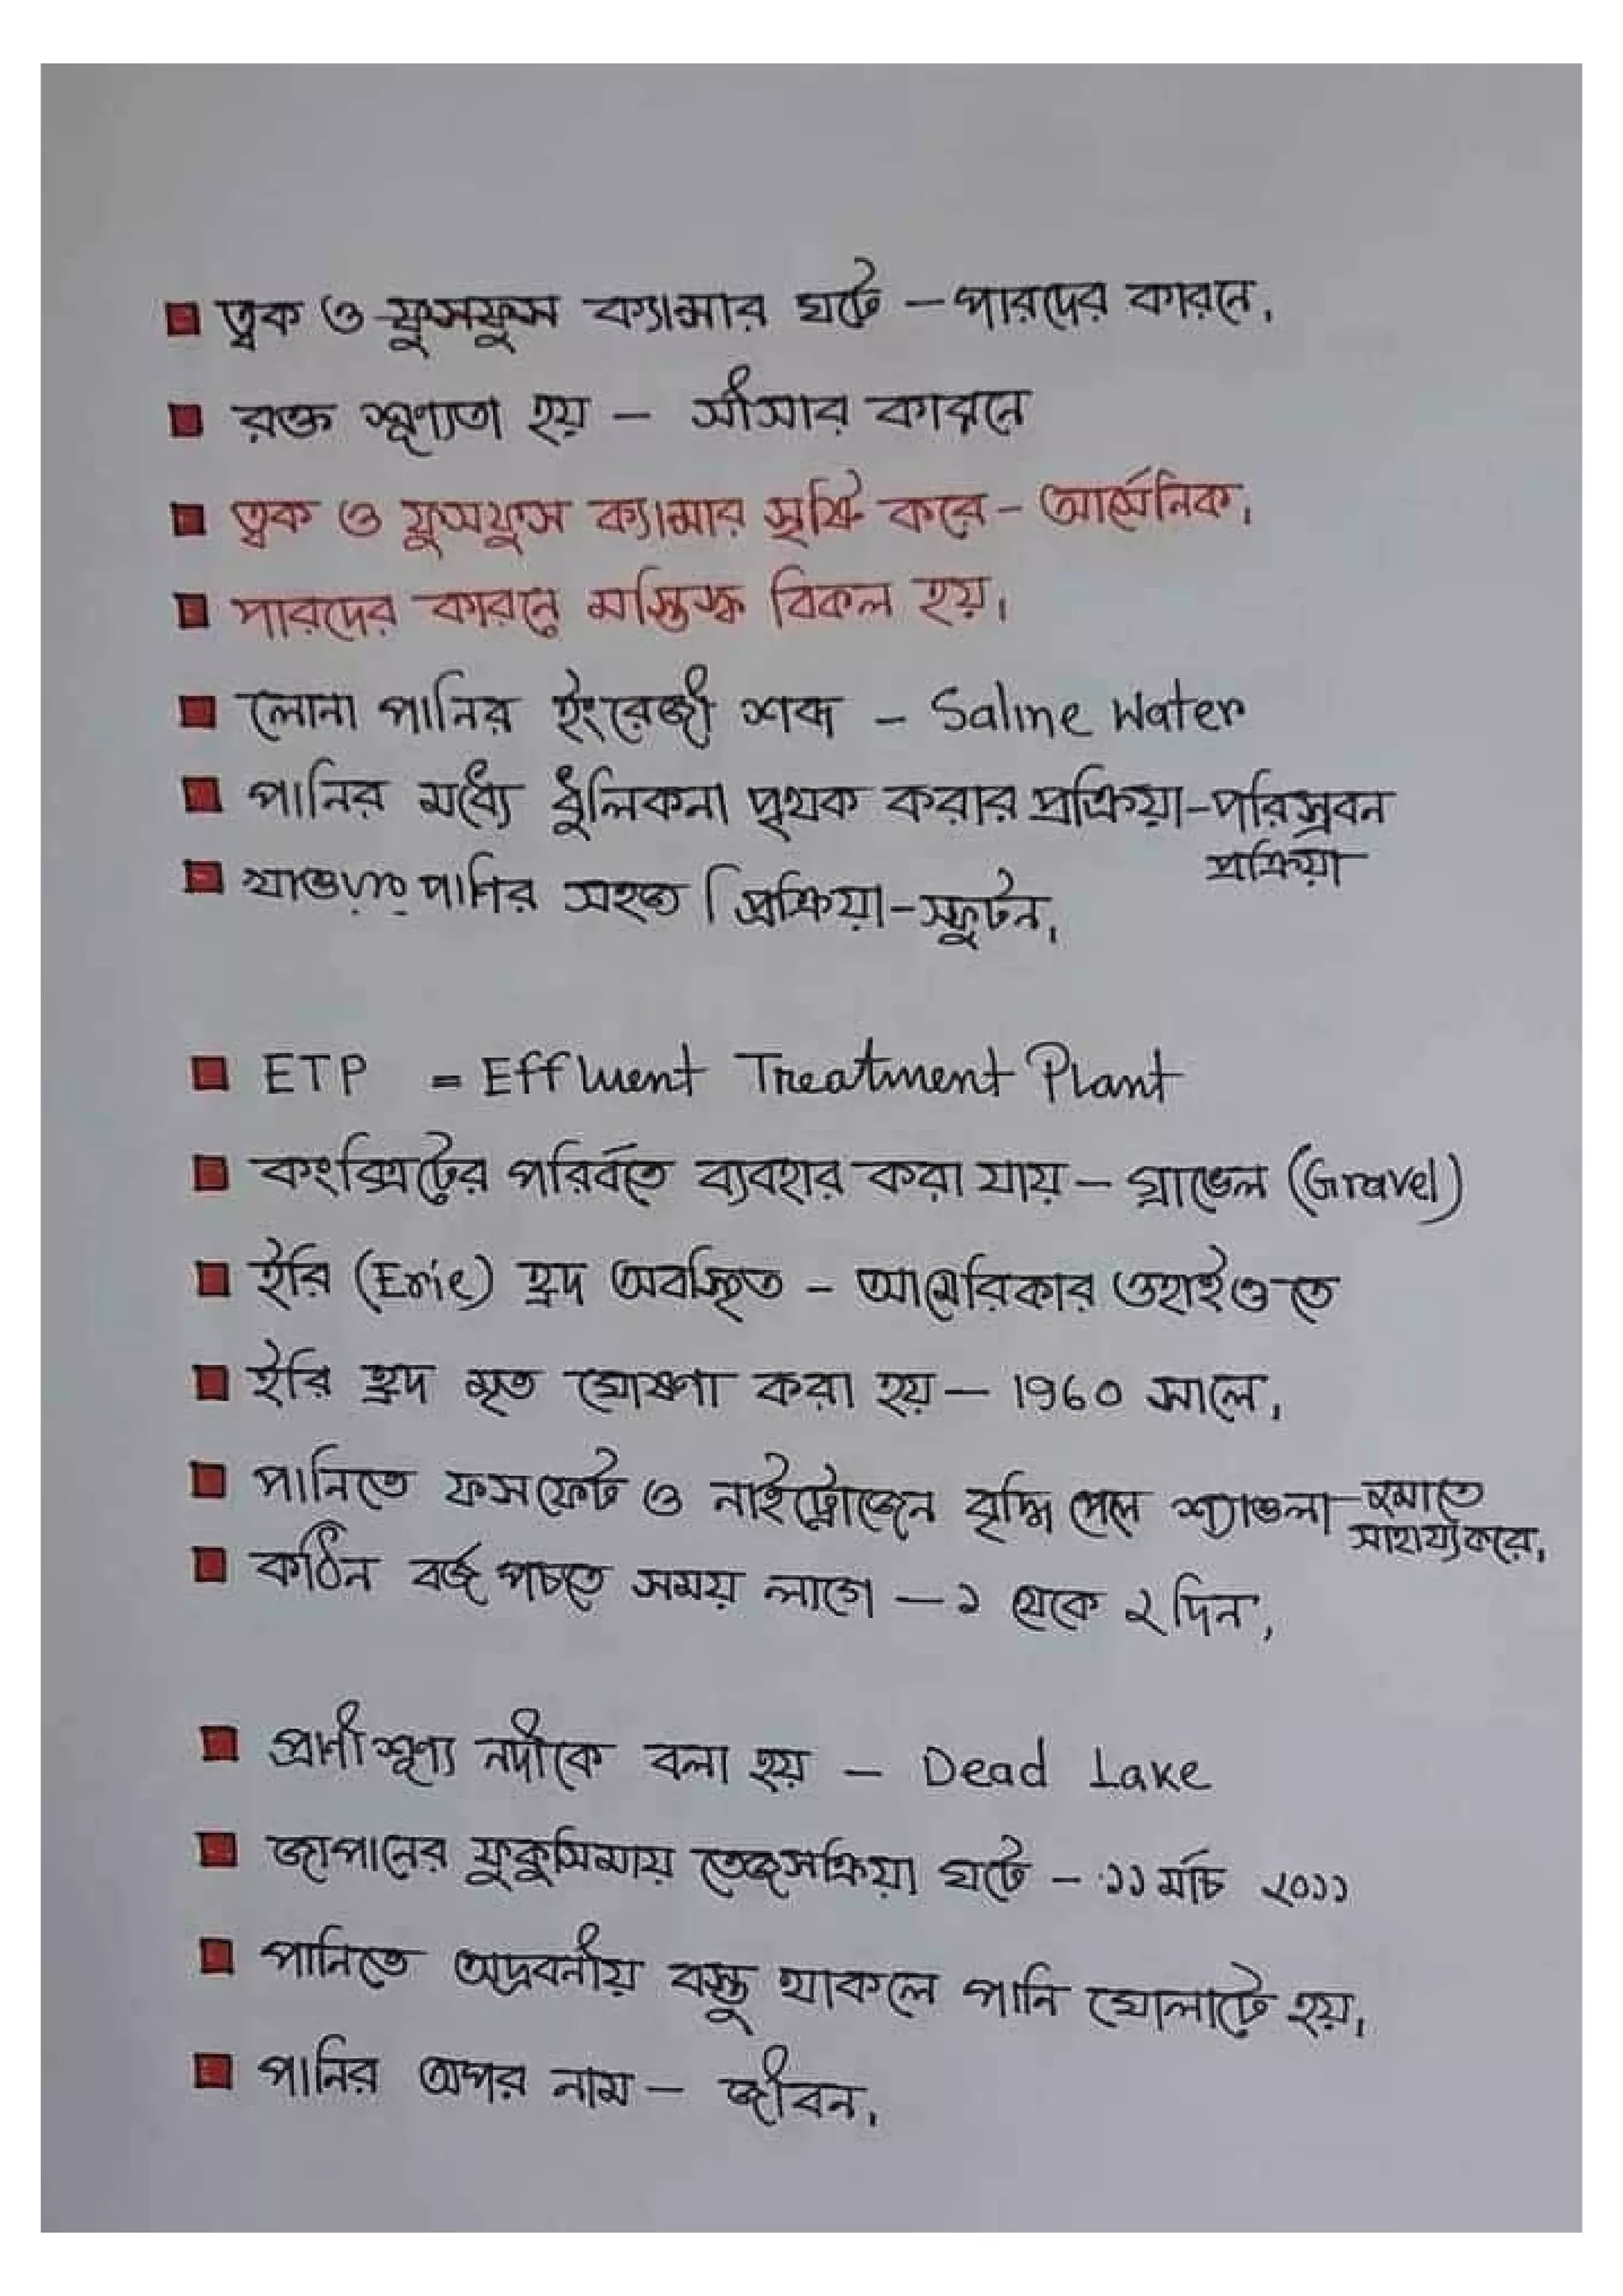 ত্বক ও ফুসফুস ক্যান্সার ঘটে – পারদের কারনে।
রক্ত শূণ্যতা হয় – সীসার কারনে
ত্বক ও ফুসফুস ক্যান্সার সৃষ্টি করে – আর্সেনিক।
পারদের কারনে মস্তিস্ক বিকল হয়।
লোনা পানির ইংরেজী শব্দ – Saline Water
পানির মধ্যে ধুলিকনা পৃথক করার প্রক্রিয়া – পরিস্রবন
প্রক্রিয়া
পানির সহজ প্রক্রিয়া – স্ফুটন।
ETP = Effluent Treatment Plant
কংক্রিটের পরির্বতে ব্যবহার করা যায় – গ্রাভেল (Gravel)
ইরি (Erie) হ্রদ অবস্থিত – আমেরিকার ওহাইও তে
ইরি হ্রদ মৃত ঘোষণা করা হয় – 1960 সালে।
পানিতে ফসফেট ও নাইট্রোজেন বৃদ্ধি পেলে শ্যাওলা জন্মাতে
সাহায্য করে।
কঠিন বর্জ পচতে সময় লাগে – ১ থেকে ২ দিন।
প্রাণী শূণ্য নদীকে বলা হয় – Dead Lake
জাপানের ফুকুসিমায় তেজসক্রিয়া ঘটে – ১১ মার্চ ২০১১
পানিতে অদ্রবনীয় বস্তু থাকলে পানি ঘোলাটে হয়।
পানির অপর নাম – জীবন।